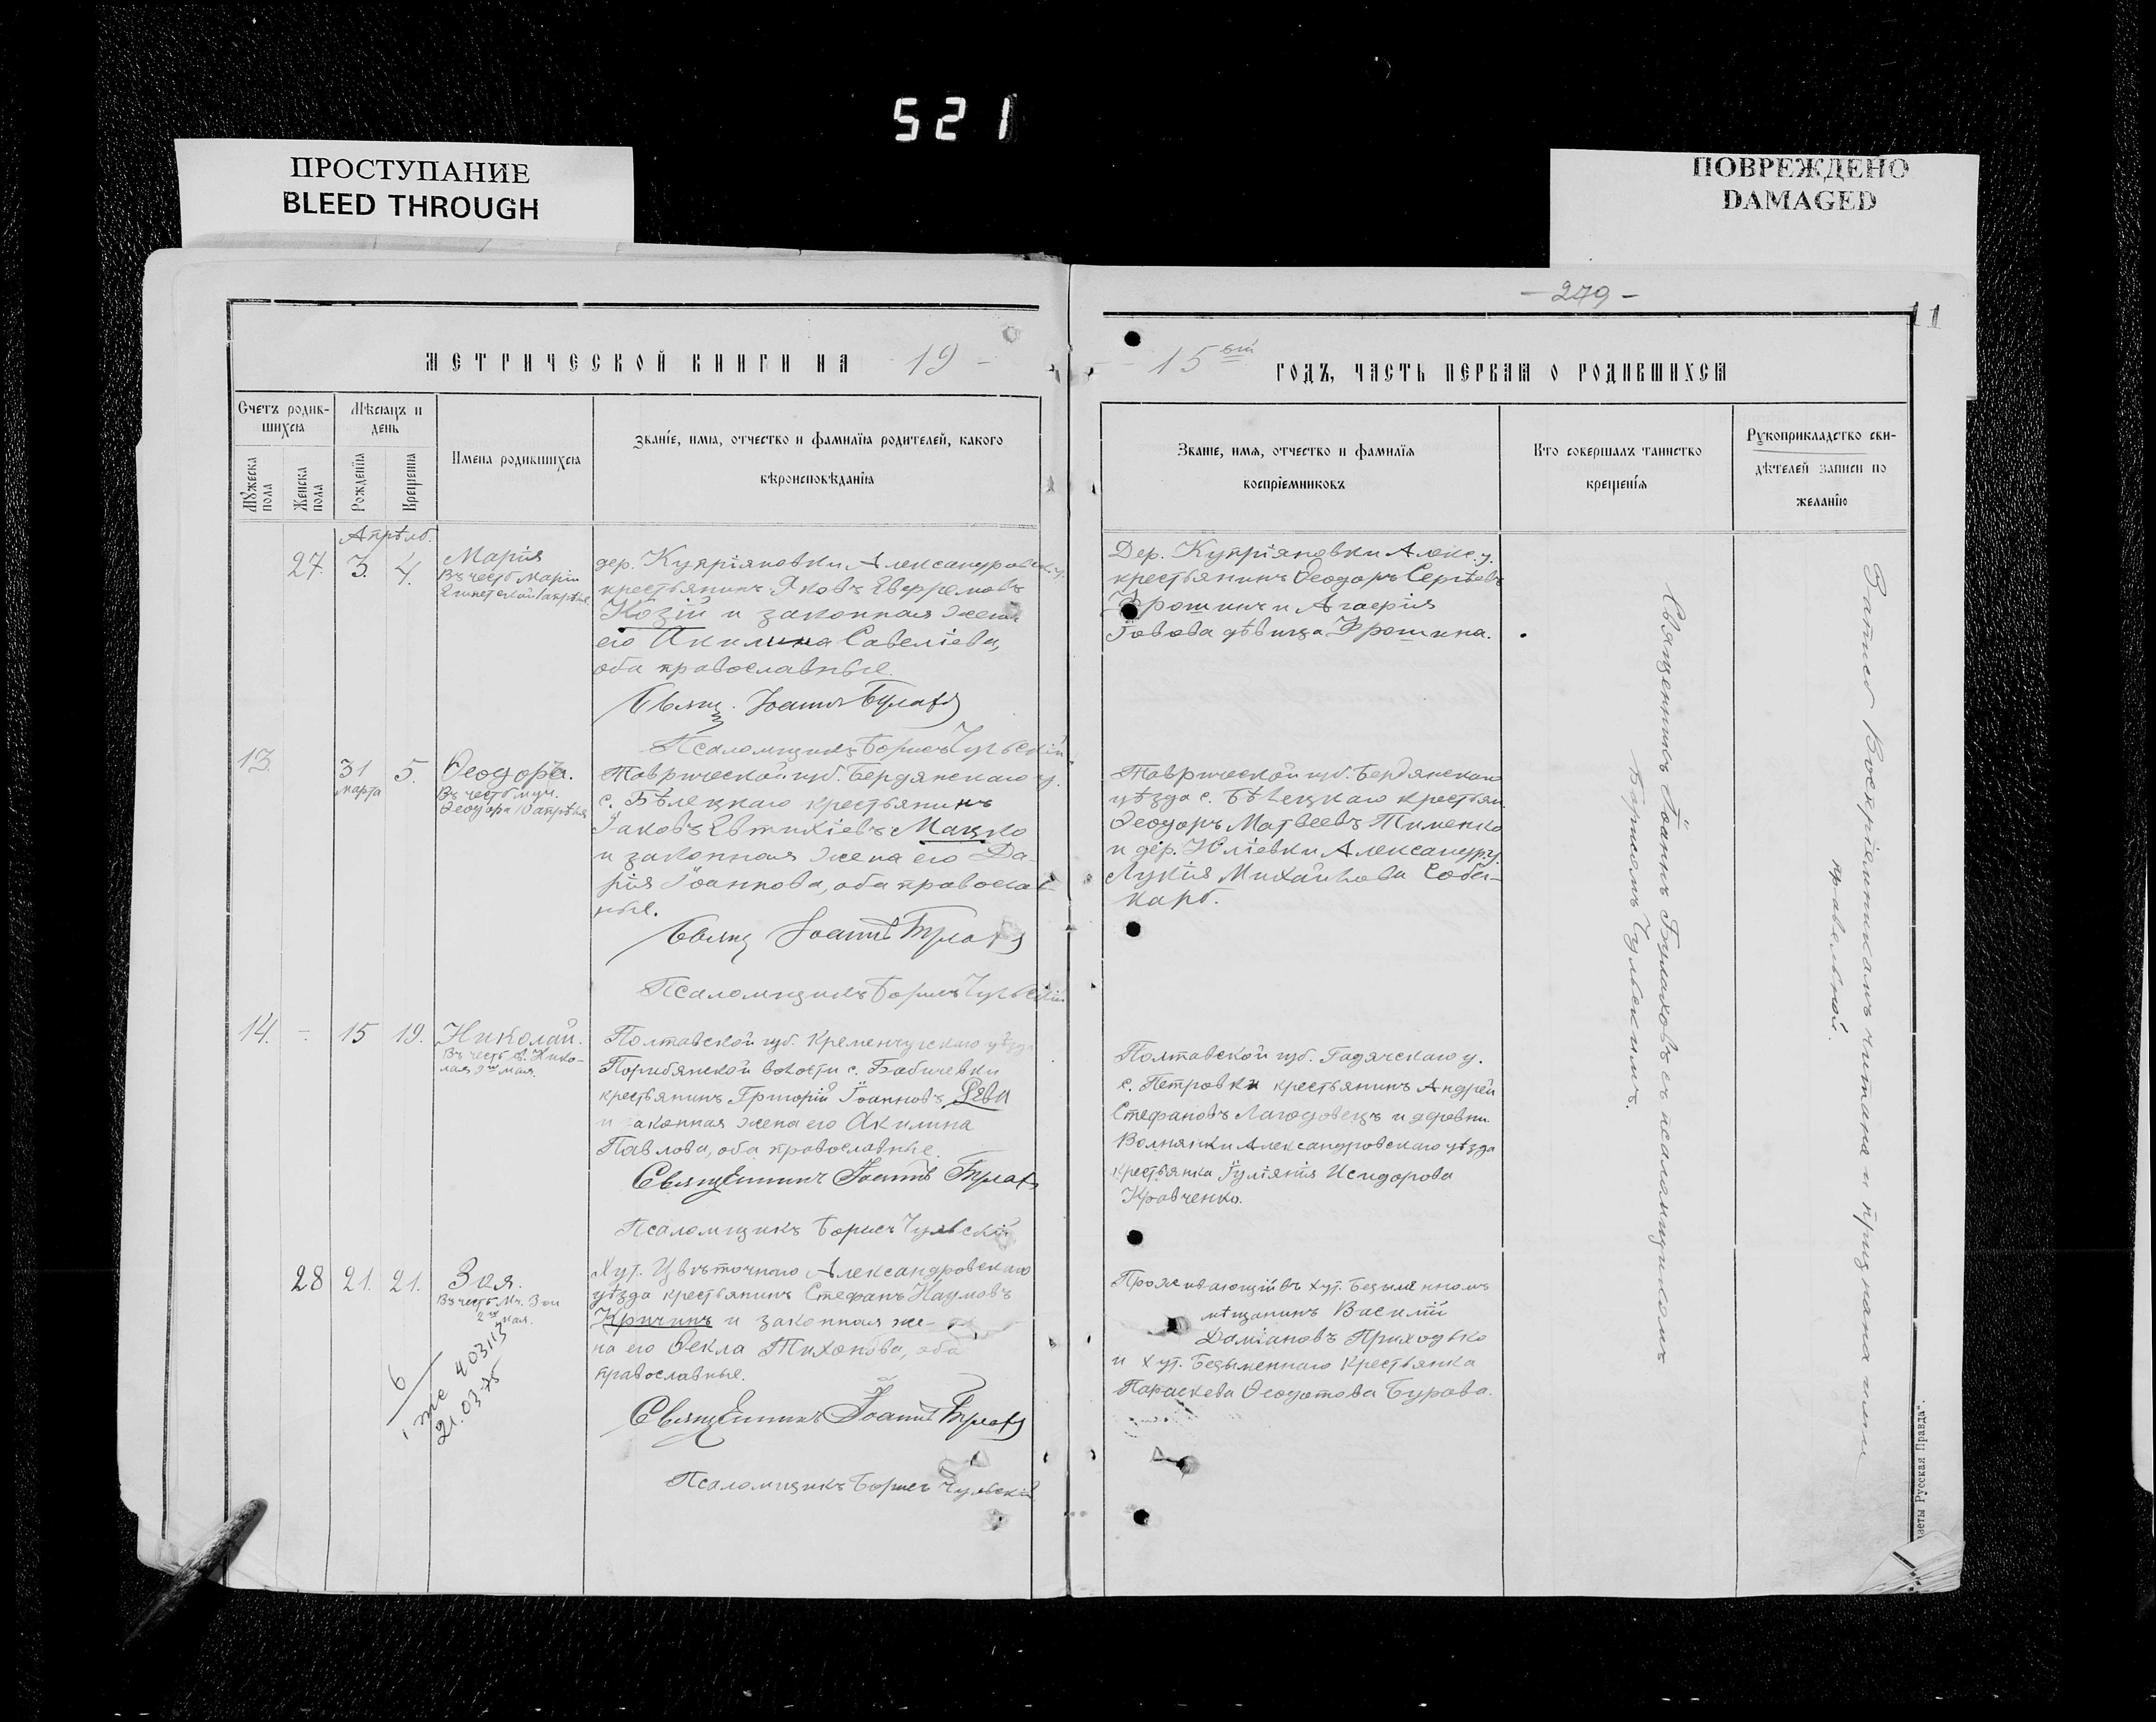 521
ПРОСТУПАНИЕ
BLEED THROUGH
ПОВРЕЖДЕНО
DAMAGED
МЕТРИЧЕСКОЙ КНИГИ НА 19 -
Счетъ родив-
шихся
Мѣсяцъ и
день
Мужеска
пола
Женска
пола
Рожденія
Крещенія
Имена родившихся
Званіе, имя, отчество и фамилія родителей, какого
вѣроисповѣданія
Апрѣль.
27. 3. 4.
Марія
Въ честь Маріи
Египетской 1 апрѣля
дер. Купріяновки Александровск. у.
крестьянинъ Яковъ Евфремовъ
Козій и законная жена
его Акилина Савеліева,
оба православные.
Свящ. Іоаннъ Булахъ
Псаломщикъ Борисъ Чульскій
13. 31 марта 5.
Ѳеодоръ.
Въ честь муч.
Ѳеодора 10 апрѣля
Таврической губ. Бердянскаго у.
с. Бѣлецкаго крестьянинъ
Іаковъ Евтихіевъ Мацко
и законная жена его Да-
рія Іоаннова, оба православ-
ные.
Свящ Іоаннъ Булахъ
Псаломщикъ Борисъ Чульскій
14. - 15 19.
Николай.
Въ честь св. Нико-
лая 9го мая.
Полтавской губ. Кременчугскаго уѣзда
волости с. Бабичевки
крестьянинъ Григорій Іоанновъ
и законная жена его Акилина
Павлова, оба православные.
Священникъ Іоаннъ Булахъ
Псаломщикъ Борисъ Чульскій
28 21. 21.
Зоя.
Въ честь Мч. Зои
2го мая.
Хут. Цвѣточнаго Александровскаго
уѣзда крестьянинъ Стефанъ Наумовъ
Кричинъ и законная же-
на его Ѳекла Тихонова, оба
православные.
Священникъ Іоаннъ Булахъ
Псаломщикъ Борисъ Чульскій
6
403113
21.03.75
- 279 -
11
15ый ГОДЪ, ЧАСТЬ ПЕРВАЯ О РОДИВШИХСЯ
Званіе, имя, отчество и фамилія
воспріемниковъ
Кто совершалъ таинство
крещенія
Рукоприкладство сви-
дѣтелей записи по
желанію
Дер. Купріяновки Алекс. у.
крестьянинъ Ѳеодоръ Сергѣевъ
Ярошинъ и Агафія
дѣвица
Таврической губ. Бердянскаго
уѣзда с. Бѣлецкаго крестьян.
Ѳеодоръ Матвеевъ Тименко
и дер. Юліевки Александр. у.
Лукія Михайлова Соба-
карь.
Полтавской губ. Гадячскаго у.
с. Петровки крестьянинъ Андрей
Стефановъ Лагодовецъ и деревни
Волнянки Александровскаго уѣзда
крестьянка Іуліянія Исидорова
Кравченко.
Проживающій въ хут. Безыменномъ
мѣщанинъ Василій
Даміановъ Приходько
и хут. Безыменнаго крестьянка
Параскева Ѳеодотова Бурава.
Священникъ Іоаннъ Булаховъ съ псаломщикомъ
Борисомъ Чульскимъ.
Запись воспріемникамъ читана и признана ими
правильной.
газеты „Русская Правда".